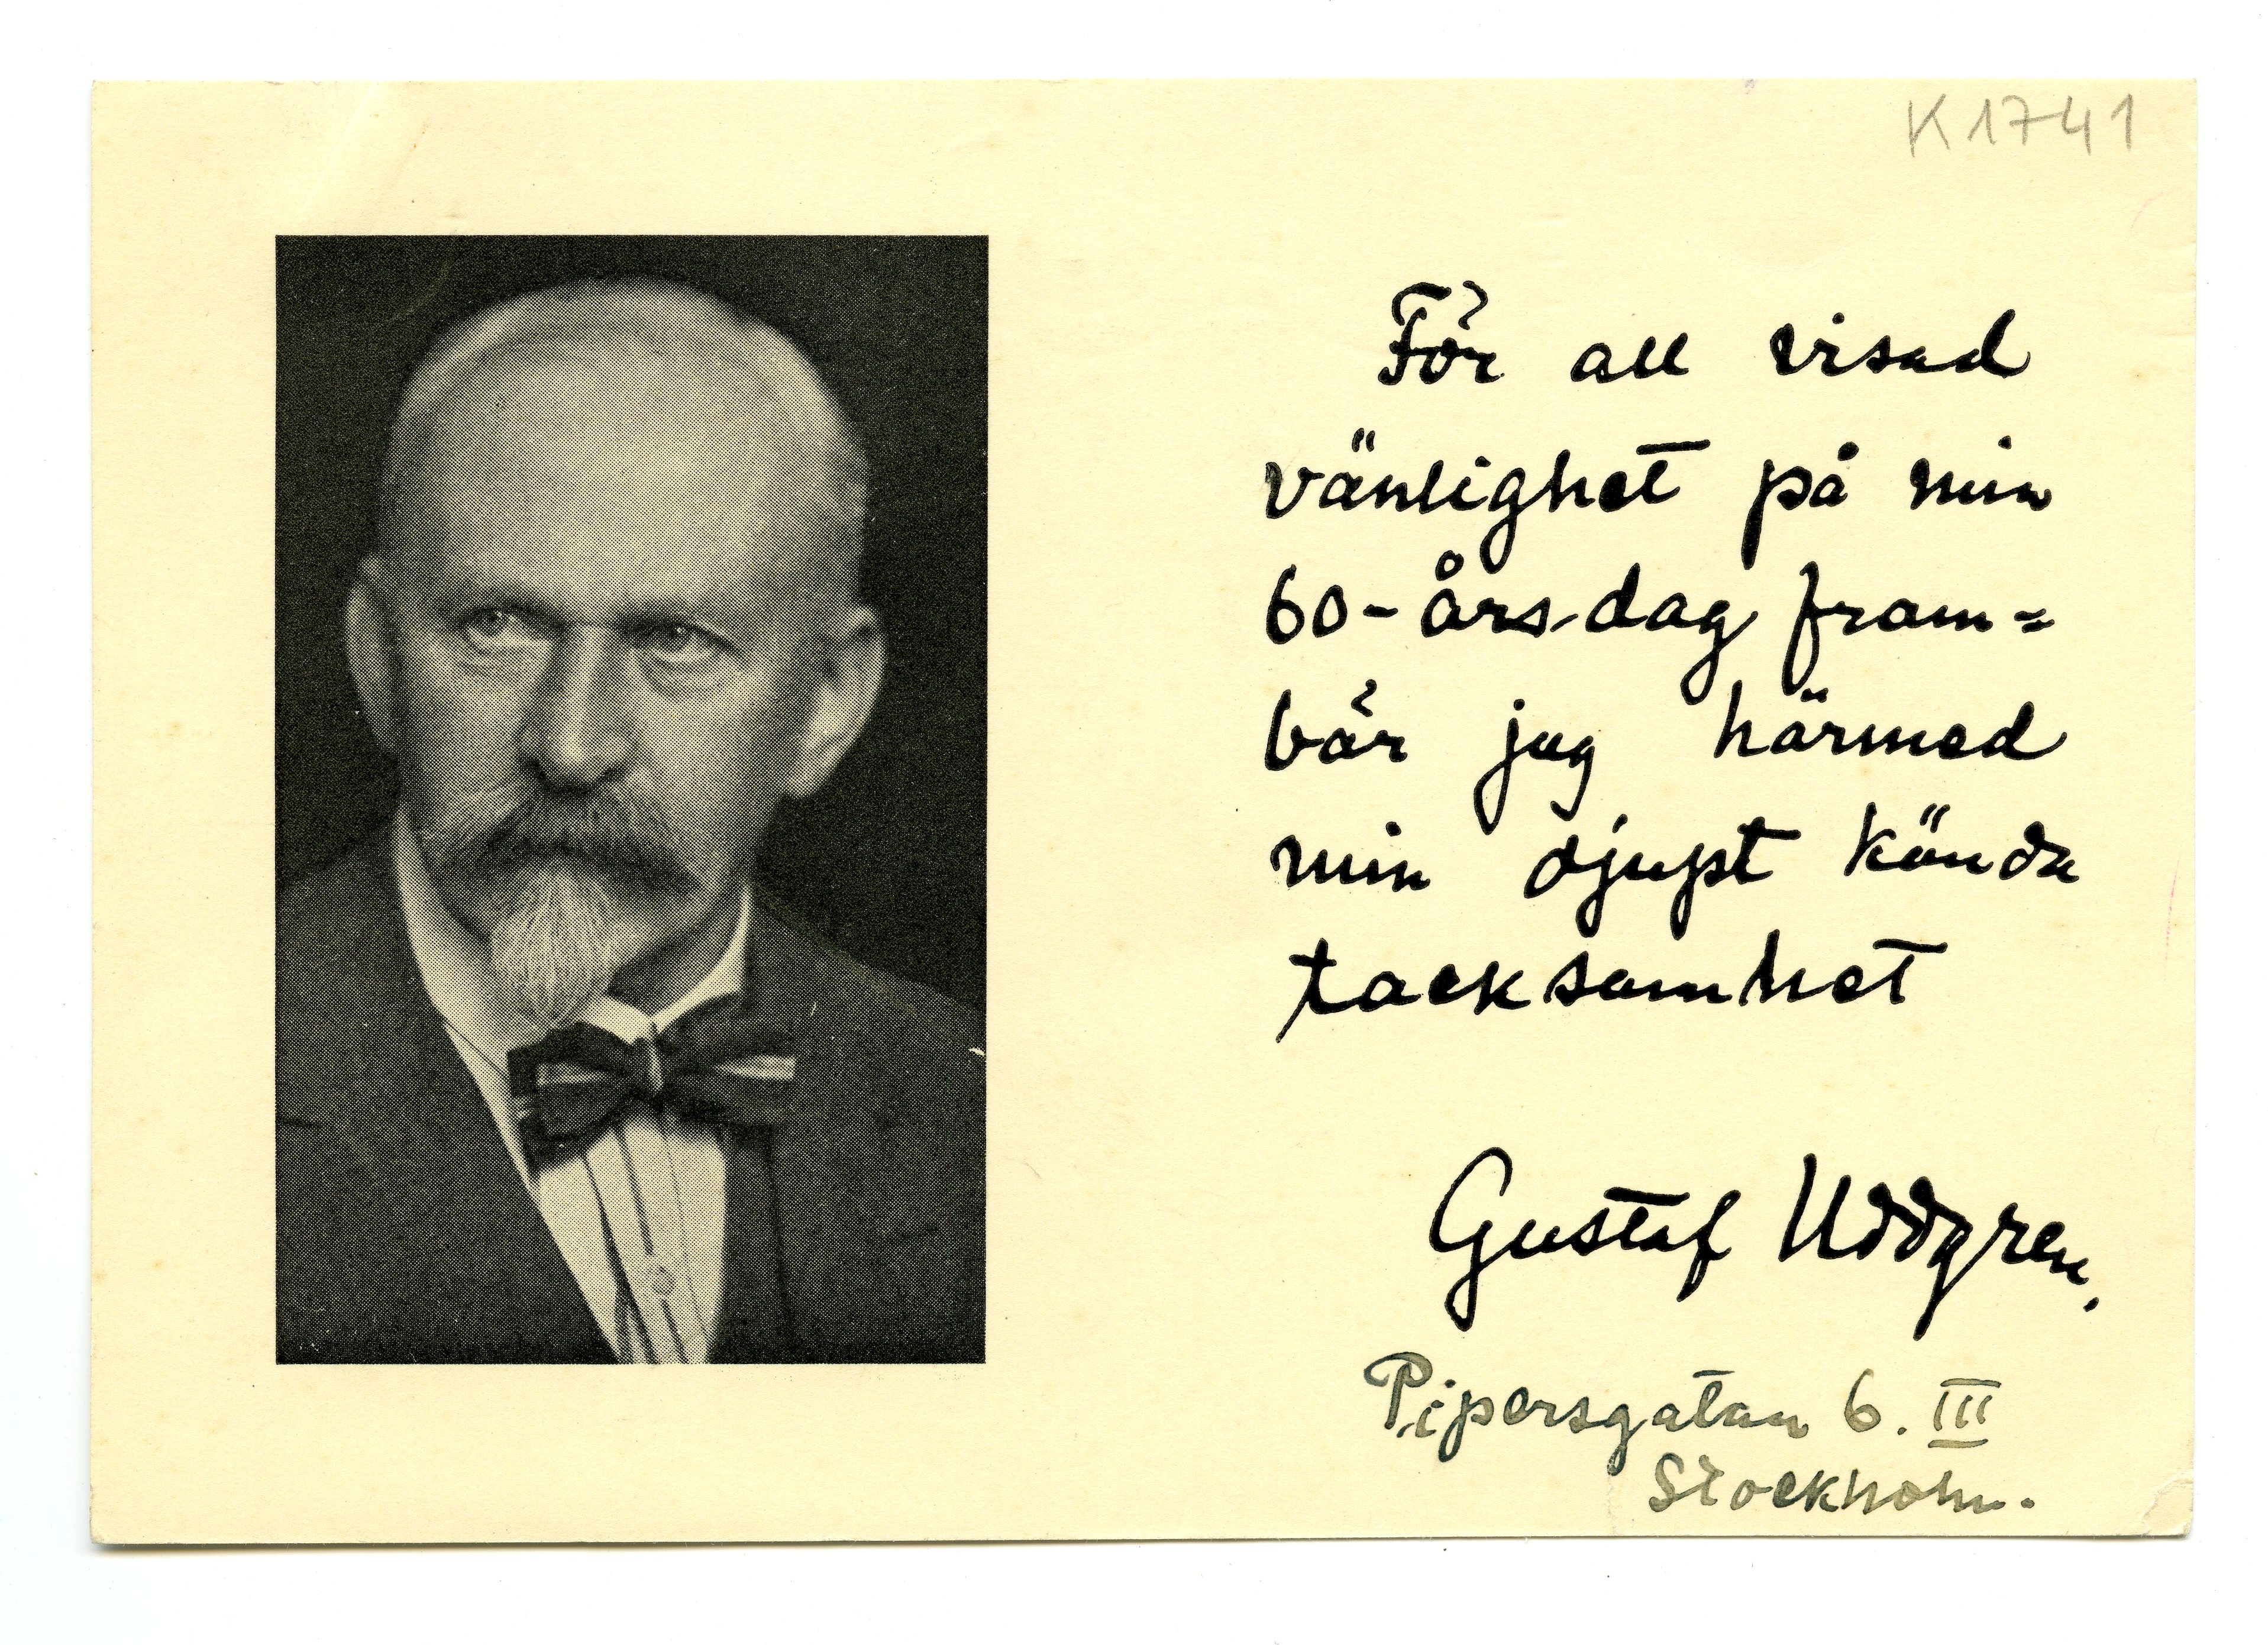 K 1741
För all visad
vänlighet på min
60-årsdag fram=
bär jag härmed
min djupt kända
tacksamhet
Gustaf Uddgren.
Pipersgatan 6. III
Stockholm.